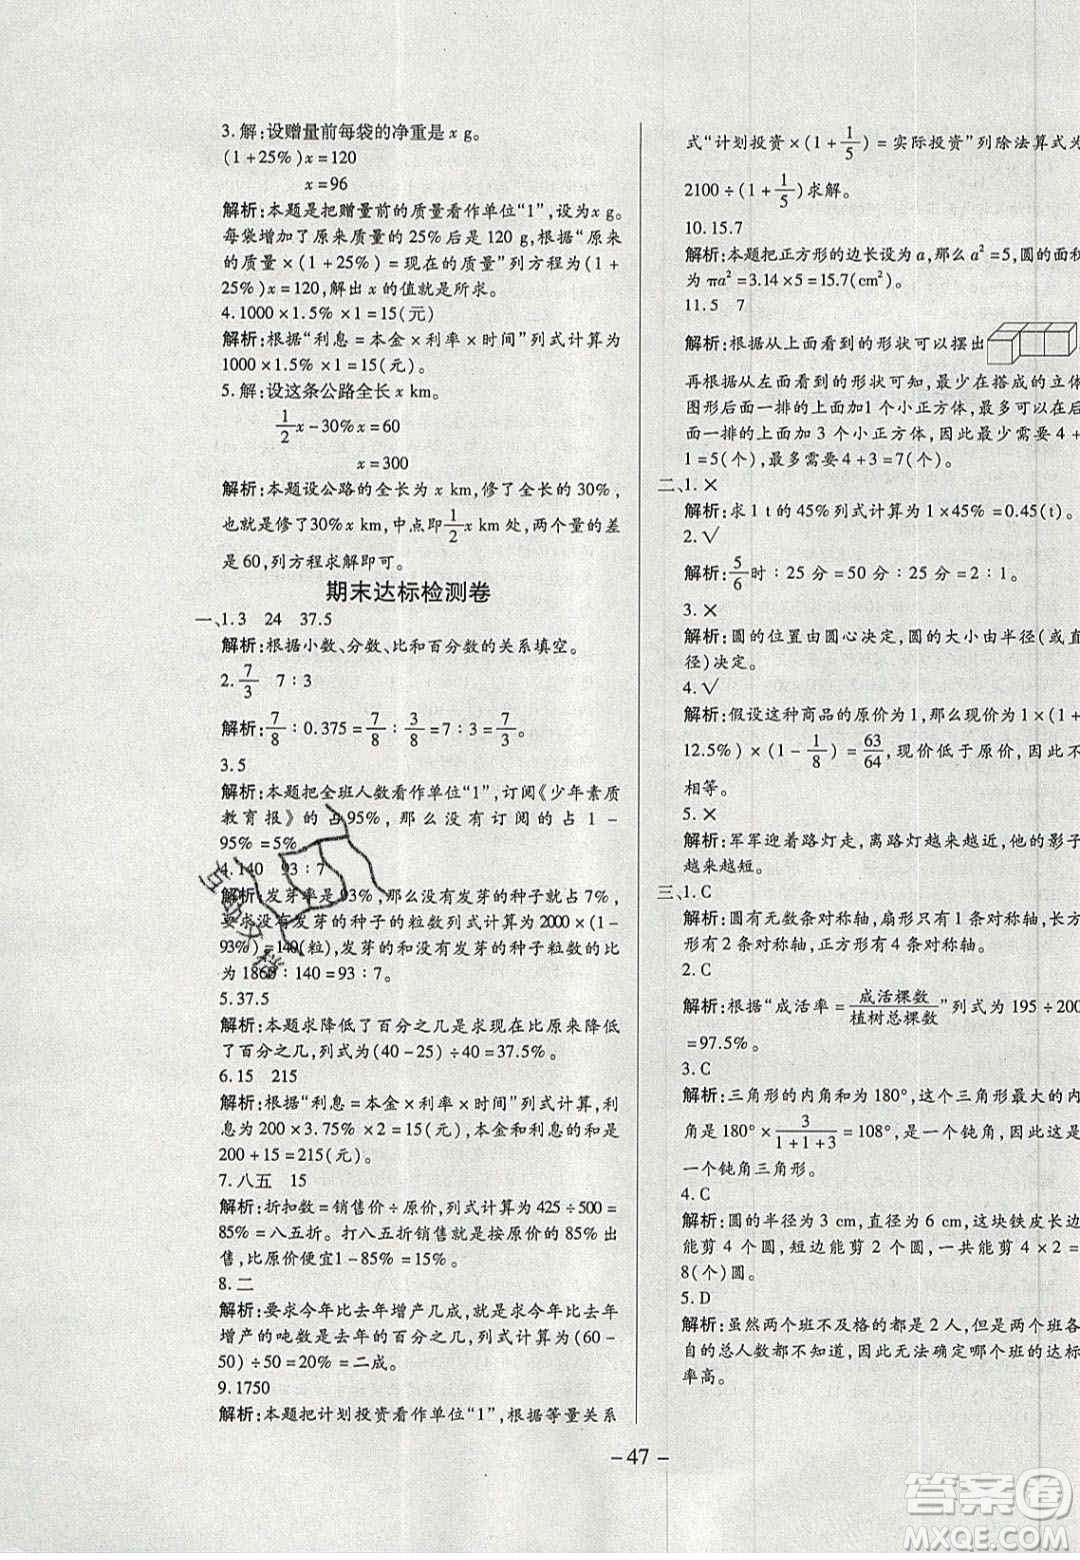 3.解:设赠量前每袋的净重是 x g。
(1+25%)x=120
x=96
解析:本题是把赠量前的质量看作单位“1”,设为 x g。
每袋增加了原来质量的 25% 后是 120 g,根据“原来
的质量×(1+25%)=现在的质量”列方程为(1+
25%)x=120,解出 x 的值就是所求。
4.1000×1.5%×1=15(元)
解析:根据“利息=本金×利率×时间”列式计算为
1000×1.5%×1=15(元)。
5.解:设这条公路全长 x km。
1/2 x-30%x=60
x=300
解析:本题设公路的全长为 x km,修了全长的 30%,
也就是修了30%x km,中点即 1/2 x km 处,两个量的差
是 60,列方程求解即可。
期末达标检测卷
一、1.3 24 37.5
解析:根据小数、分数、比和百分数的关系填空。
2. 7/3 7∶3
解析: 7/8∶0.375=7/8∶3/8=7∶3=7/3。
3.5
解析:本题把全班人数看作单位“1”,订阅《少年素质
教育报》的占 95%,那么没有订阅的占 1-
95%=5%。
4.140 93∶7
解析:发芽率是93%,那么没有发芽的种子就占 7%,
要求没有发芽的种子的粒数列式计算为 2000×(1-
93%)=140(粒),发芽的和没有发芽的种子数的比
为 1860∶140=93∶7。
5.37.5
解析:本题求降低了百分之几是求现在比原来降低
了百分之几,列式为(40-25)÷40=37.5%。
6.15 215
解析:根据“利息=本金×利率×时间”列式计算,利
息为 200×3.75%×2=15(元),本金和利息的和是
200+15=215(元)。
7.八五 15
解析:折扣数=销售价÷原价,列式计算为 425÷500=
85%=八五折。打八五折销售就是按原价的 85%出
售,比原价便宜了 1-85%=15%。
8.二
解析:要求今年比去年增产几成,就是求今年比去年
增产的吨数是去年的百分之几,列式计算为(60-
50)÷50=20%=二成。
9.1750
解析:本题把计划投资看作单位“1”,根据等量关系
式“计划投资×(1+1/5)=实际投资”列除法算式为
2100÷(1+1/5)求解。
10.15.7
解析:本题把正方形的边长设为 a,那么 a²=5,圆的面积
为 πa²=3.14×5=15.7(cm²)。
11.5 7
解析:根据从上面看到的形状可以摆出
再根据从左面看到的形状可知,最少在搭成的立体
图形后面一排的上面加1 个小正方体,最多可以在
后面一排的上面加 3 个小正方体,因此最少需要 4+
1=5(个),最多需要 4+3=7(个)。
二、1.×
解析:求 1 t 的 45% 列式计算为 1×45%=0.45(t)。
2.√
解析: 5/6 时∶25 分=50 分∶25 分=2∶1。
3.×
解析:圆的位置由圆心决定,圆的大小由半径(或直
径)决定。
4.√
解析:假设这种商品的原价为 1,那么现价为 1×(1+
12.5%)×(1-1/8)=63/64,现价低于原价,因此不
相等。
5.×
解析:军军迎着路灯走,离路灯越来越近,他的影子
越来越短。
三、1.C
解析:圆有无数条对称轴,扇形只有 1 条对称轴,长方
形有 2 条对称轴,正方形有 4 条对称轴。
2.C
解析:根据“成活率=成活棵数/植树总棵数”列式为 195÷200
=97.5%。
3.C
解析:三角形的内角和为 180°,这个三角形最大的内
角是 180°×3/(1+1+3)=108°,是一个钝角,因此这是
一个钝角三角形。
4.C
解析:圆的半径为 3 cm,直径为 6 cm,这块铁皮长边
能剪 4 个圆,短边能剪 2 个圆,一共能剪 4×2=
8(个)圆。
5.D
解析:虽然两个班不及格的都是 2 人,但两个班各
自的总人数都不知道,因此无法确定哪个班的达标
率高。
-47-
答案圈
MXQE.COM